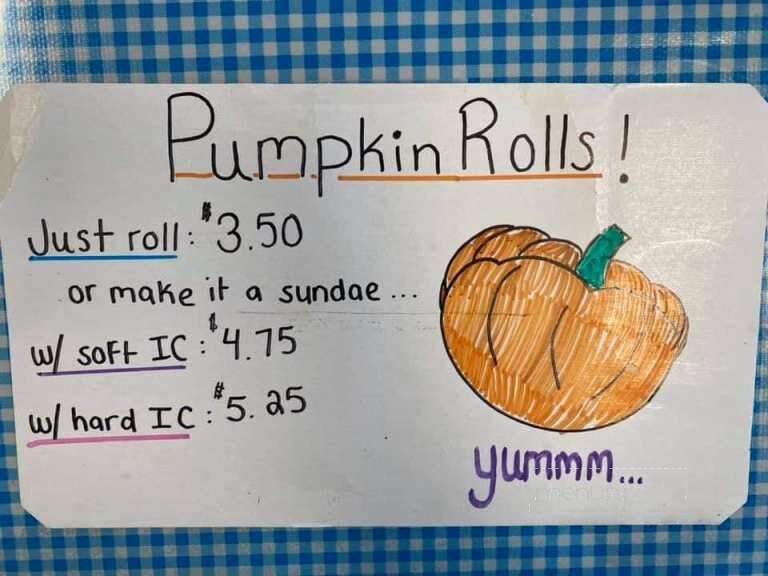 Pumpkin Rolls!
Just roll: $3.50
or make it a sundae...
w/ soft IC: $4.75
w/ hard IC: $5.25
yummm...